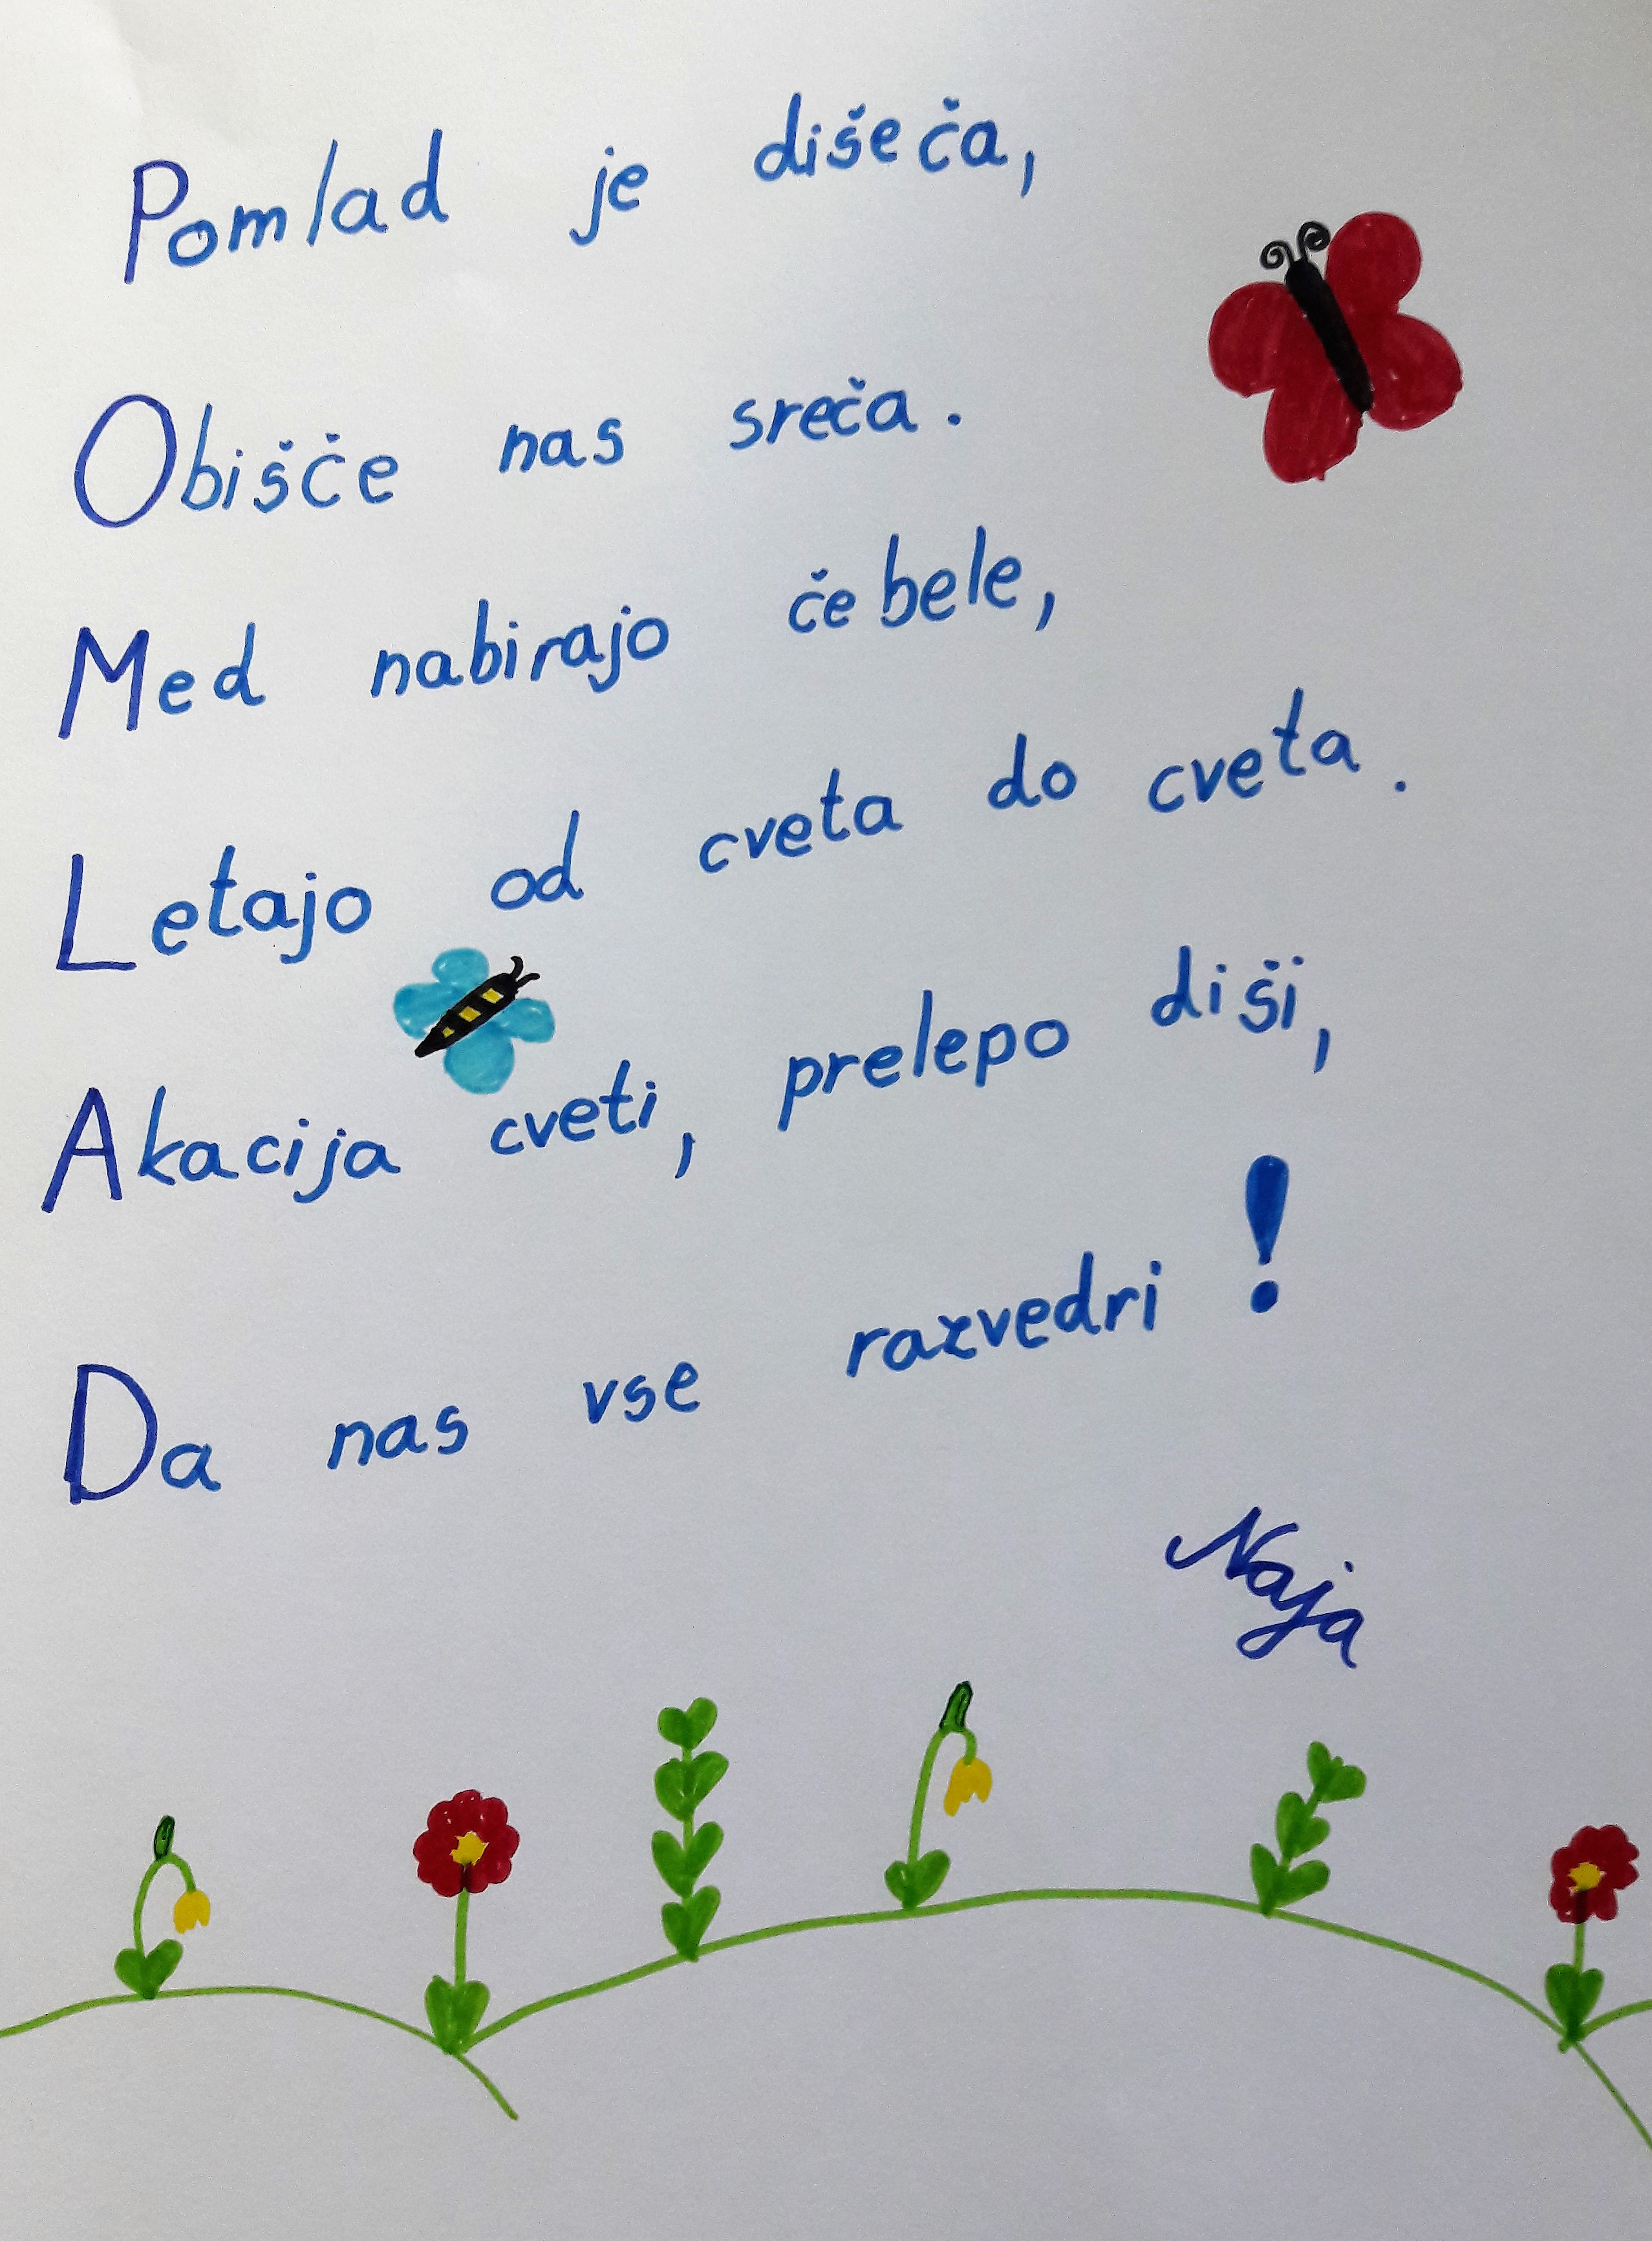 Pomlad je dišeča,
Obišče nas sreča.
Med nabirajo čebele,
Letajo od cveta do cveta.
Akacija cveti, prelepo diši,
Da nas vse razvedri!
Naja